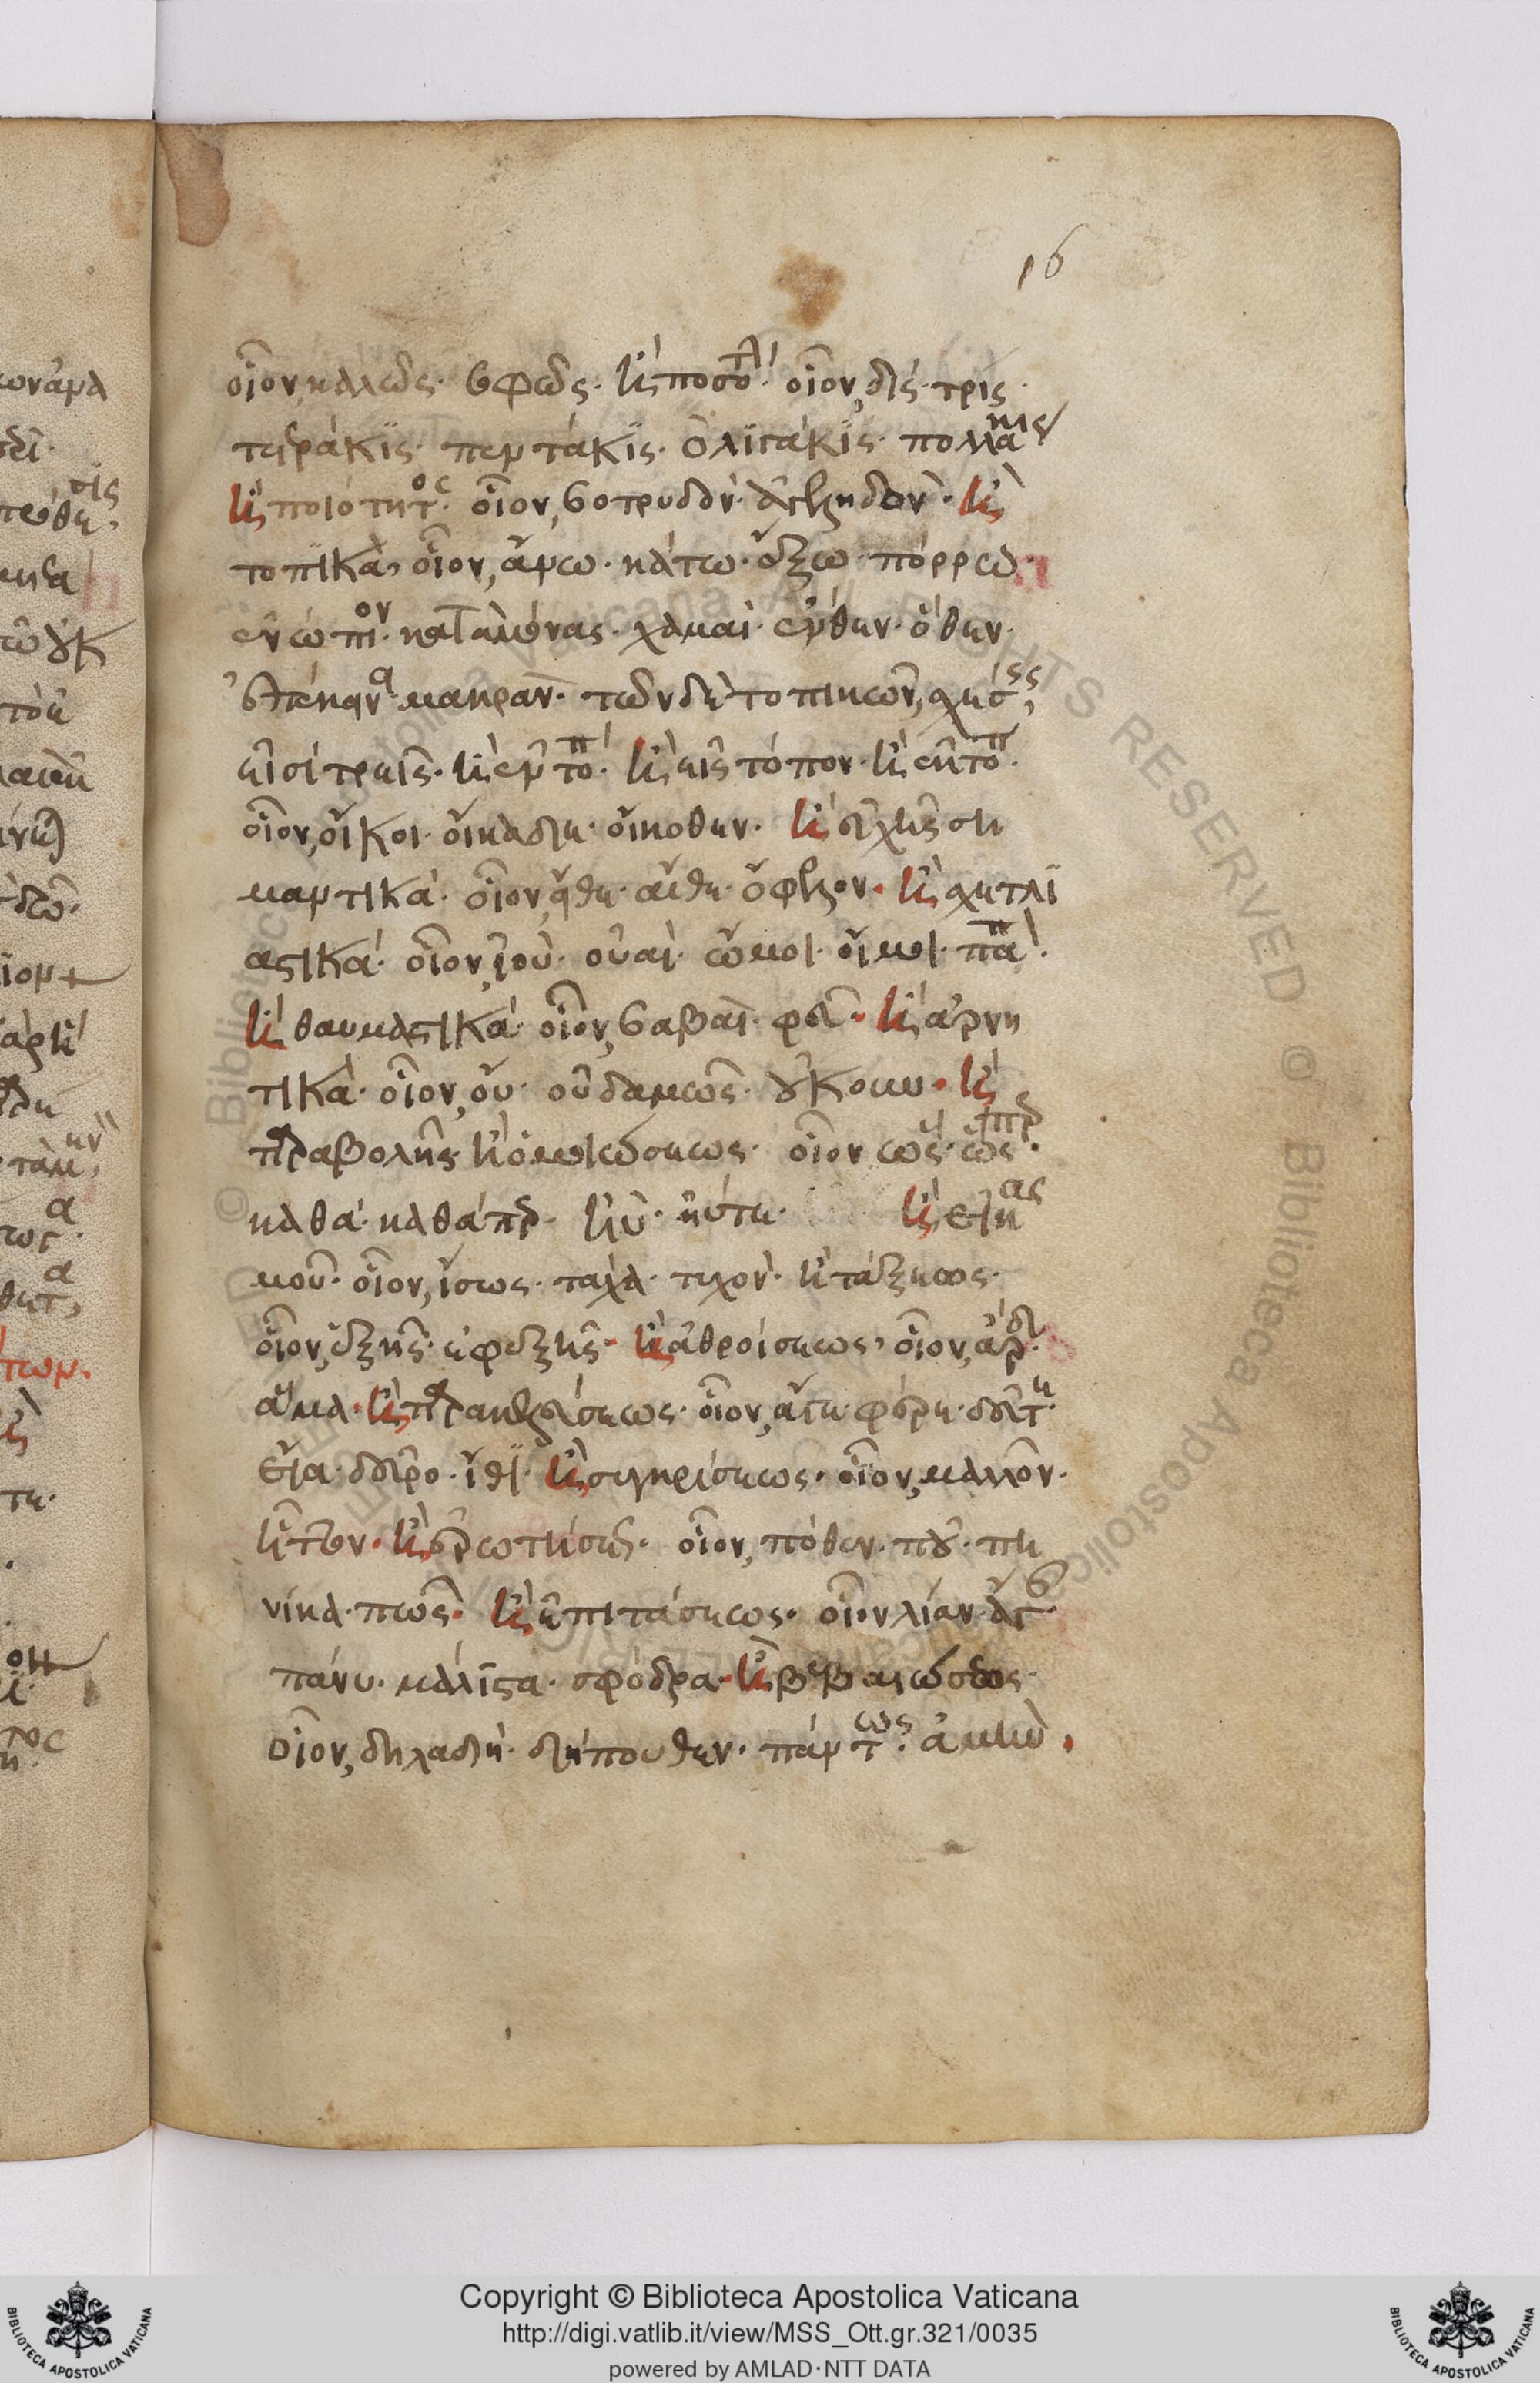 16
οἷον, καλῶς· σοφῶς· καὶ ποσότητος· οἷον, δίς· τρίς·
τετράκις· πεντάκις· ὀλιγάκις· πολλάκις
καὶ ποιότητος· οἷον, βοτρυδόν· ἀγεληδόν· καὶ
τοπικά, οἷον, ἄνω· κάτω· ἔξω· πόρρω·
ἐνώπιον· καταμόνας· χαμαί· ἔνθεν· ὅθεν·
μακράν· τῶν δὲ τοπικῶν, σχέσεις,
εἰσὶ τρεῖς· καὶ ἐν τόπῳ· καὶ εἰς τόπον· καὶ ἐκ τόπου·
οἷον, οἴκοι· οἴκαδε· οἴκοθεν· καὶ εὐχῆς ση
μαντικά· οἷον, εἴθε· αἴθε· ὄφελον· καὶ σχετλι
αστικά· οἷον, ἰού· οὐαί· ὤμοι· οἴμοι· παπαί·
καὶ θαυμαστικά· οἷον, βαβαί· φεῦ· καὶ ἀρνη
τικά· οἷον, οὔ· οὐδαμῶς· οὔκουν· καὶ
παραβολῆς καὶ ὁμοιώσεως· οἷον ὡς· ὥσπερ·
καθά· καθάπερ· ἠΰτε· καὶ εἰκας
μοῦ· οἷον, ἴσως· τάχα· τυχόν· καὶ τάξεως·
οἷον, ἑξῆς· ἐφεξῆς· καὶ ἀθροίσεως, οἷον, ἄρδην·
ἅμα· καὶ παρακελεύσεως· οἷον, ἄγε· φέρε· δεῦτε·
εἶα· δεῦρο· ἴθι· καὶ συγκρίσεως· οἷον, μᾶλλον·
ἧττον· καὶ ἐρωτήσεως· οἷον, πόθεν· ποῦ· πη
νίκα· πῶς· καὶ ἐπιτάσεως· οἷον λίαν· ἄγαν·
πάνυ· μάλιστα· σφόδρα· καὶ βεβαιώσεως·
οἷον, δηλαδή· δήπουθεν· πάντως· ἀμήν·
Copyright © Biblioteca Apostolica Vaticana
http://digi.vatlib.it/view/MSS_Ott.gr.321/0035
powered by AMLAD·NTT DATA